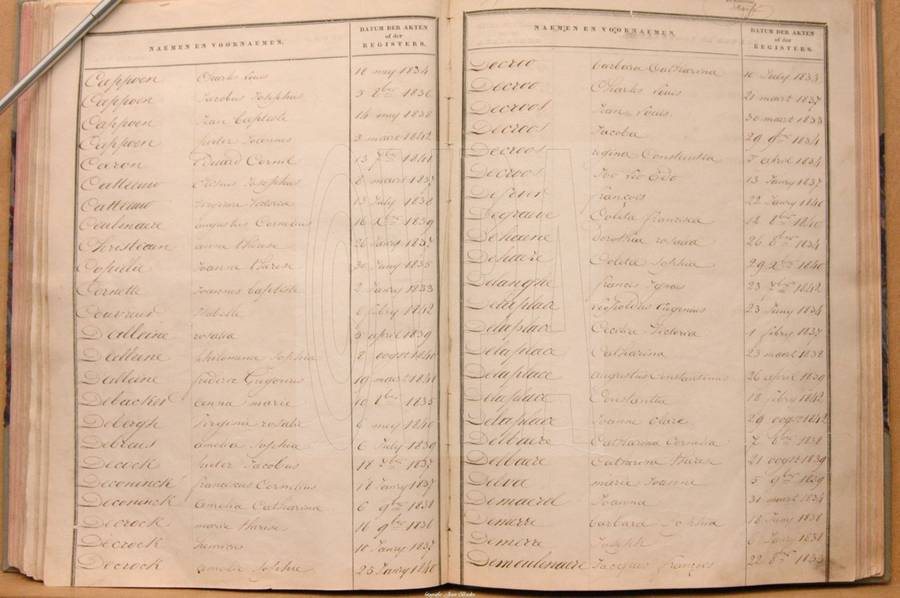 NAEMEN EN VOORNAEMEN.
DATUM DER AKTEN
of der
REGISTERS.
Cappoen Charles Louis 10 mey 1834
Cappoen Jacobus Josephus 5 8bre 1836
Cappoen Jean Baptiste 14 mey 1838
Cappoen pieter Joannes 3 maart 1842
Caron Eduard Corneil 13 1841
Catteeuw Josephus 8 maart 1837
Catteeuw 13 July 1838
Ceulenaere augustus Cornelius 16 Xbre 1839
Christiaen anna Theresia 26 1837
Copillie Joanna Theresia 30 Juny 1835
Cornette Joannes Baptiste 2 Janry 1833
Couvreur Isabelle 6 febry 1842
Dalleine rosalia 5 april 1839
Dalleine philomenie Sophia 8 oogst 1840
Dalleine frederic Gregorius 19 maart 1841
Debacker anna marie 10 8bre 1835
Debergh Virginie rosalie 6 mey 1840
Debruis amelia Sophia 6 July 1839
Decock pieter Jacobus 18 1837
Deconinck franciscus Cornelius 18 Janry 1837
Deconinck Amelia Catharina 6 9bre 1838
Decrock marie Therese 16 9bre 1836
Decrock 10 Janry 1837
Decrock Amelie Sophie 25 Janry 1840
NAEMEN EN VOORNAEMEN.
DATUM DER AKTEN
of der
REGISTERS.
Decroo barbara Catharina 10 July 1833
Decroo Charles Louis 21 maart 1837
Decroos Jean Louis 30 maart 1833
Decroos Jacoba 29 9bre 1834
Decroos regina Constantia 5 april 1834
Decroos Ivo Leo Edo 13 Janry 1837
Defever françois 22 Janry 1840
Degraeve Coleta francisca 12 1840
Dehaene Dorothia rosalia 26 8bre 1834
Dehaere Coleta Sophia 29 Xbre 1840
Delanghe francis Ignas 23 1842
Delaplace Leopoldus Eugenius 23 Juny 1834
Delaplace Cecilia Victoria 1 febry 1837
Delaplace Catharina 23 maart 1838
Delaplace augustus Constantinus 26 april 1839
Delaplace Constantia 18 febry 1842
Delaplace Joanna Clare 29 oogst 1842
Delbaere Catharina Cornelia 1838
Delbaere Catharina Therese 21 oogst 1839
Delva marie Joanne 5 9bre 1839
Demaerel Joanna 31 maart 1834
Demerre barbara Sophia 18 Juny 1836
Demerre Joseph 6 Janry 1838
Demeulenaere Jacques françois 22 8bre 1833